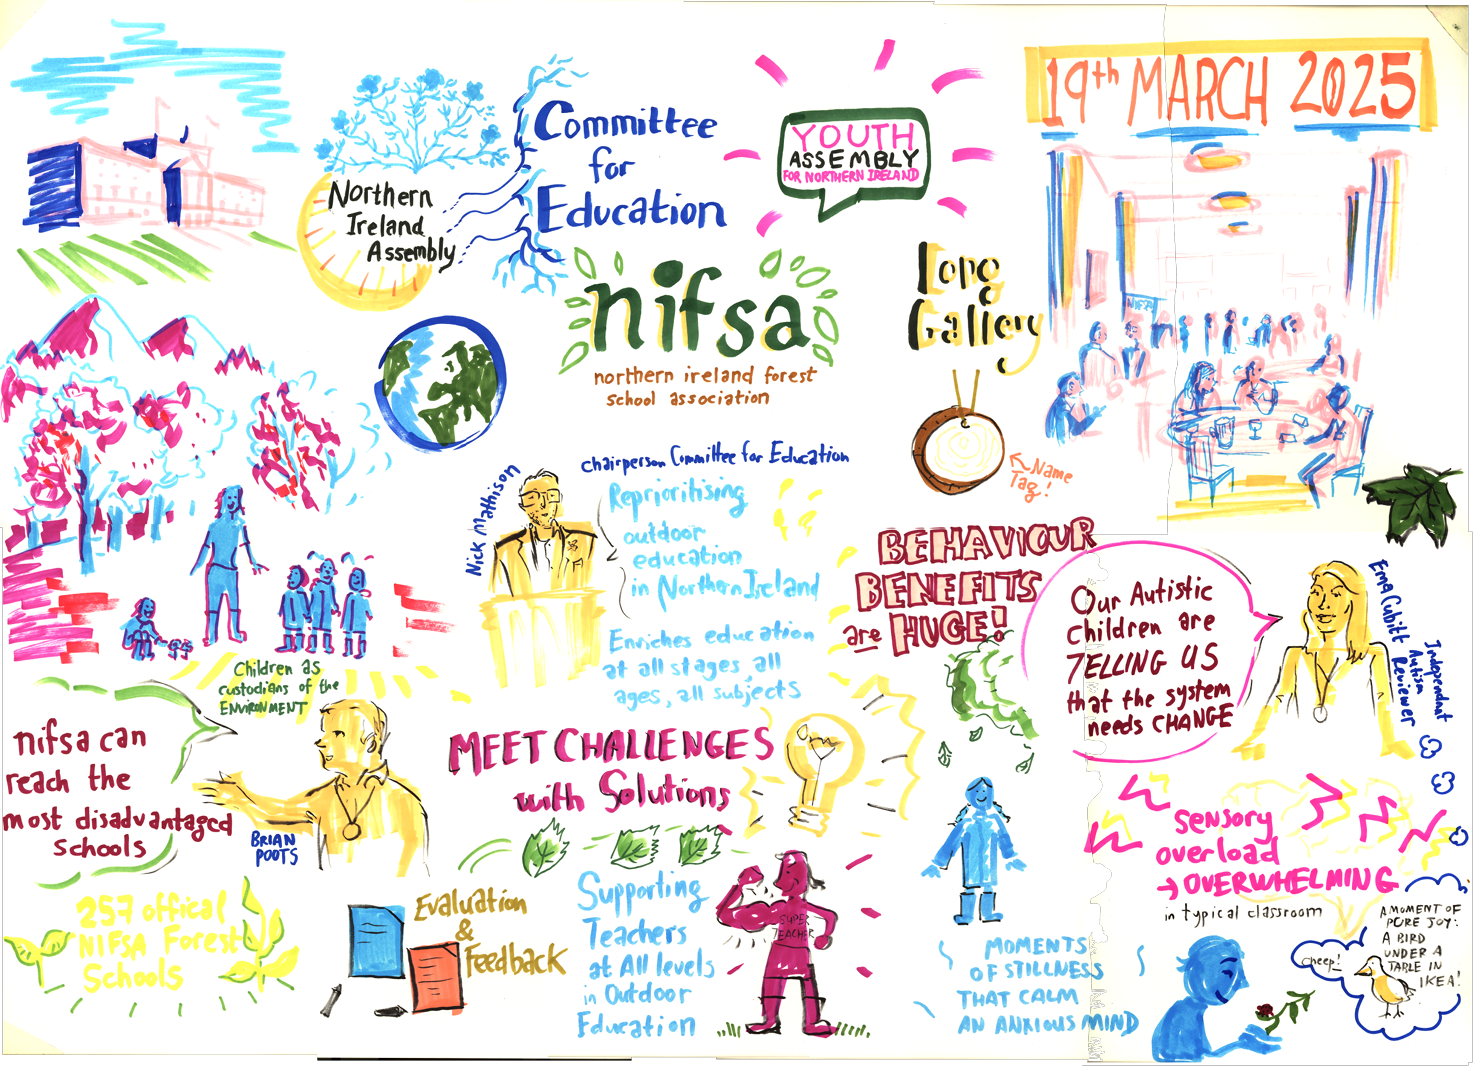 19th MARCH 2025
Northern
Ireland
Assembly
Committee
for
Education
YOUTH
ASSEMBLY
FOR NORTHERN IRELAND
nifsa
northern ireland forest
school association
Long
Gallery
NIFSA
Name
Tag!
Nick Mathison
chairperson Committee for Education
Reprioritising
outdoor
education
in Northern Ireland
Enriches education
at all stages, all
ages, all subjects
BEHAVIOUR
BENEFITS
are HUGE!
Our Autistic
children are
TELLING US
that the system
needs CHANGE
Ema Cubitt
Independnat
Autism
Reviewer
Children as
custodians of the
ENVIRONMENT
nifsa can
reach the
most disadvantaged
Schools
BRIAN
POOTS
MEET CHALLENGES
with Solutions
Sensory
overload
→ OVERWHELMING
in typical classroom
257 offical
NIFSA Forest
Schools
Evaluation
&
Feedback
Supporting
Teachers
at All levels
in Outdoor
Education
SUPER
TEACHER
MOMENTS
OF STILLNESS
THAT CALM
AN ANXIOUS MIND
A MOMENT OF
PURE JOY:
A BIRD
UNDER A
TABLE IN
IKEA!
cheep!